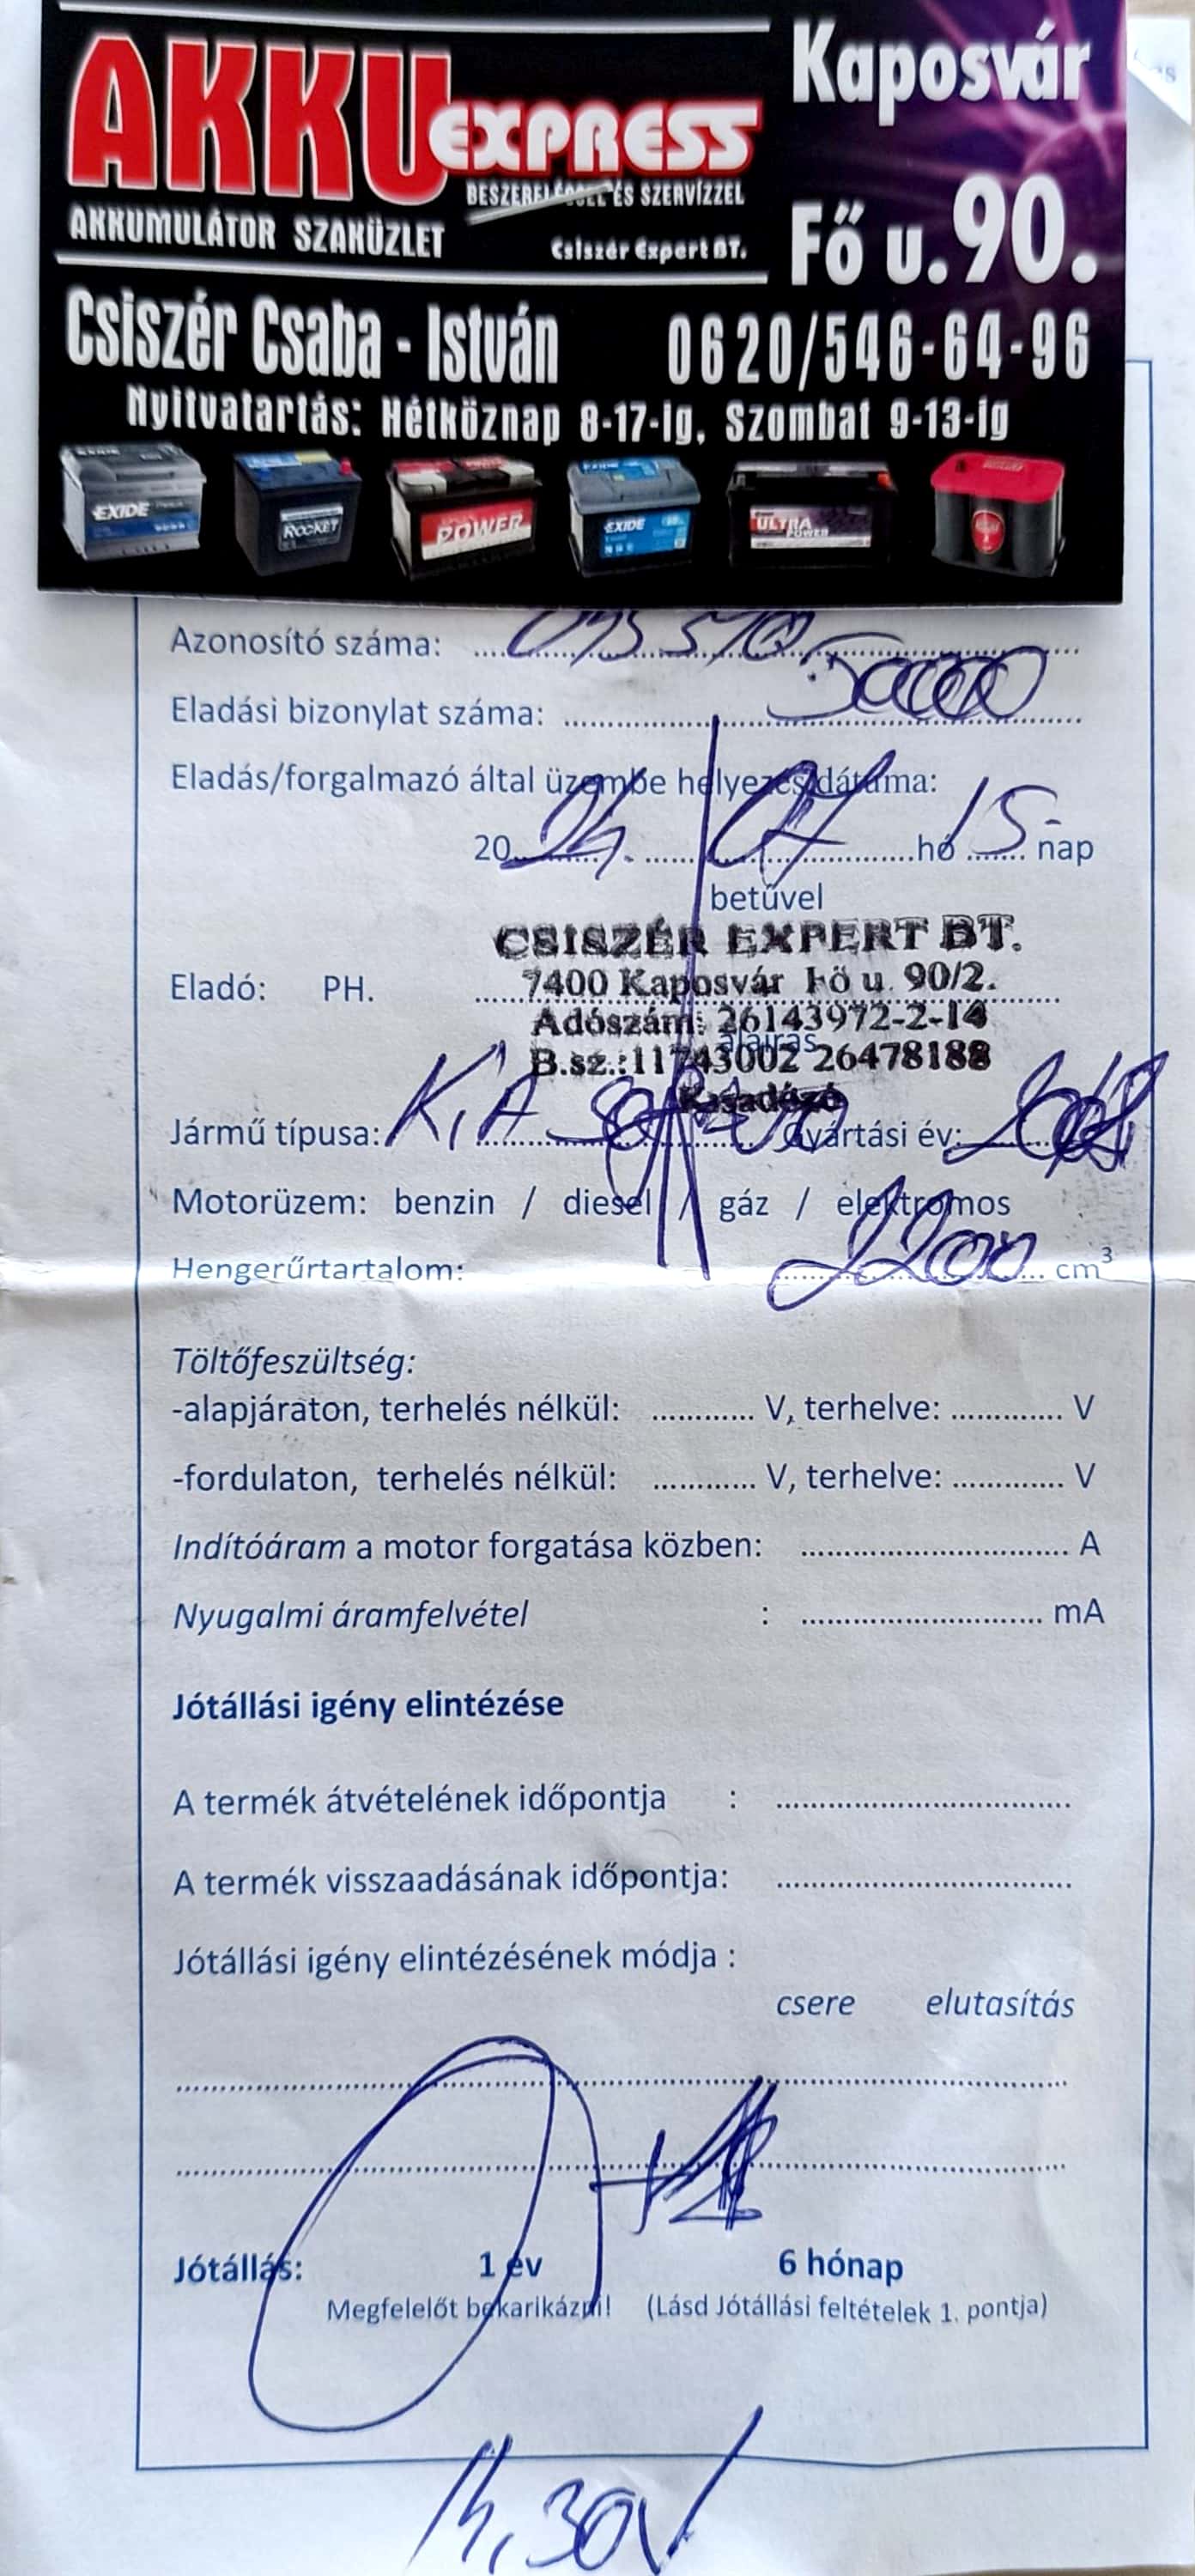 AKKU EXPRESS
BESZERELÉSSEL ÉS SZERVÍZZEL
AKKUMULÁTOR SZAKÜZLET
Csiszér Expert BT.
Kaposvár
Fő u. 90.
Csiszér Csaba - István 0620/546-64-96
Nyitvatartás: Hétköznap 8-17-ig, Szombat 9-13-ig
EXIDE ROCKET POWER EXIDE ULTRA POWER
Azonosító száma:
Eladási bizonylat száma:
Eladás/forgalmazó által üzembe helyezés dátuma:
20 24. 07 hó 15 nap
betűvel
CSISZÉR EXPERT BT.
Eladó: PH. 7400 Kaposvár Fő u. 90/2.
Adószám: 26143972-2-14
aláírás
B.sz.:11743002 26478188
Jármű típusa: KIA Gyártási év:
Motorüzem: benzin / diesel / gáz / elektromos
Hengerűrtartalom: 2200 cm³
Töltőfeszültség:
-alapjáraton, terhelés nélkül: ............ V, terhelve: ............. V
-fordulaton, terhelés nélkül: ............ V, terhelve: ............. V
Indítóáram a motor forgatása közben: ................................ A
Nyugalmi áramfelvétel : ............................. mA
Jótállási igény elintézése
A termék átvételének időpontja : ...................................
A termék visszaadásának időpontja: ...................................
Jótállási igény elintézésének módja :
csere elutasítás
Jótállás: 1 év 6 hónap
Megfelelőt bekarikázni! (Lásd Jótállási feltételek 1. pontja)
14,30V